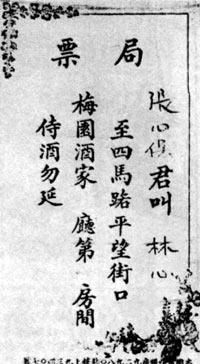 局票
張心僕君叫 林心
至四馬路平望街口
梅園酒家 廳第 房間
侍酒勿延